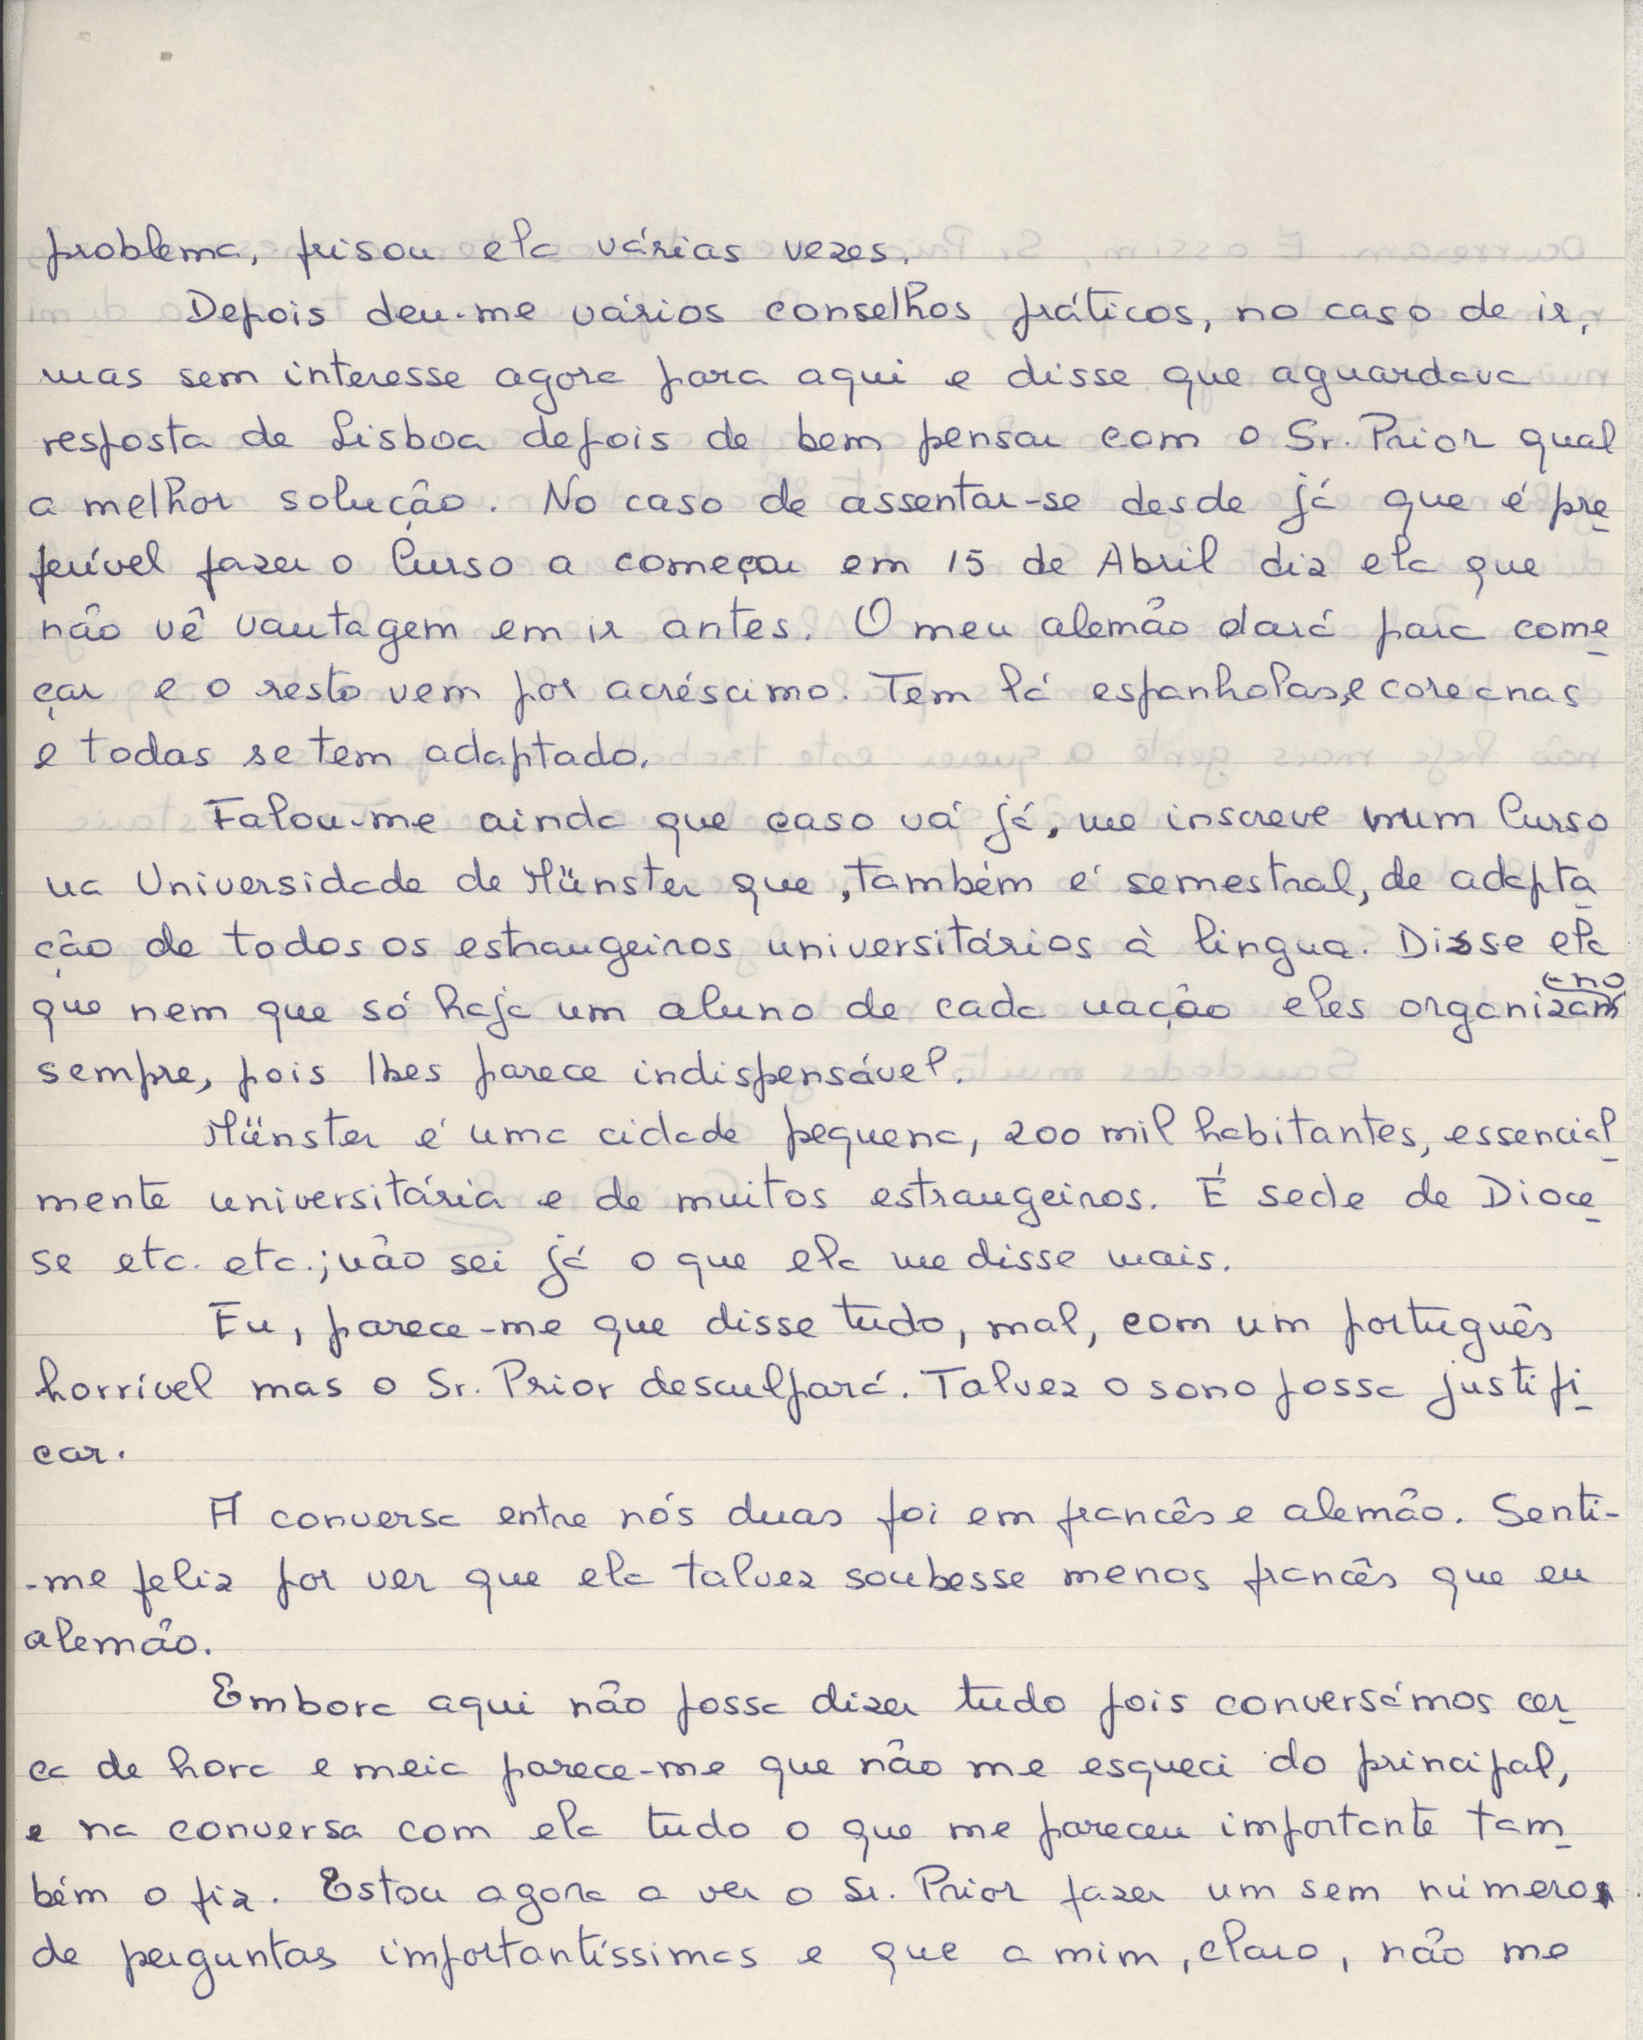 problema, frisou ela várias vezes.
Depois deu-me vários conselhos práticos, no caso de ir,
mas sem interesse agora para aqui e disse que aguardava
resposta de Lisboa depois de bem pensar com o Sr. Prior qual
a melhor solução. No caso de assentar-se desde já que é pre
ferível fazer o Curso a começar em 15 de Abril diz ela que
não vê vantagem em ir antes. O meu alemão dará para come
çar e o resto vem por acréscimo. Tem lá espanholas, e coreanas
e todas se tem adaptado.
Falou-me ainda que caso vá já, me inscreve num Curso
na Universidade de Münster que, também é semestral, de adapta
ção de todos os estrangeiros universitários à lingua. Disse ela
que nem que só haja um aluno de cada nação eles organizam-no
sempre, pois lhes parece indispensável.
Münster é uma cidade pequena, 200 mil habitantes, essencial
mente universitária e de muitos estrangeiros. É sede de Dioce
se etc. etc.; não sei já o que ela me disse mais.
Eu, parece-me que disse tudo, mal, com um português
horrível mas o Sr. Prior desculpará. Talvez o sono possa justifi
car.
A conversa entre nós duas foi em francês e alemão. Senti-
-me feliz por ver que ela talvez soubesse menos francês que eu
alemão.
Embora aqui não possa dizer tudo pois conversámos cer
ca de hora e meia parece-me que não me esqueci do principal,
e na conversa com ela tudo o que me pareceu importante tam
bém o fiz. Estou agora a ver o Sr. Prior fazer um sem número
de perguntas importantíssimas e que a mim, claro, não me